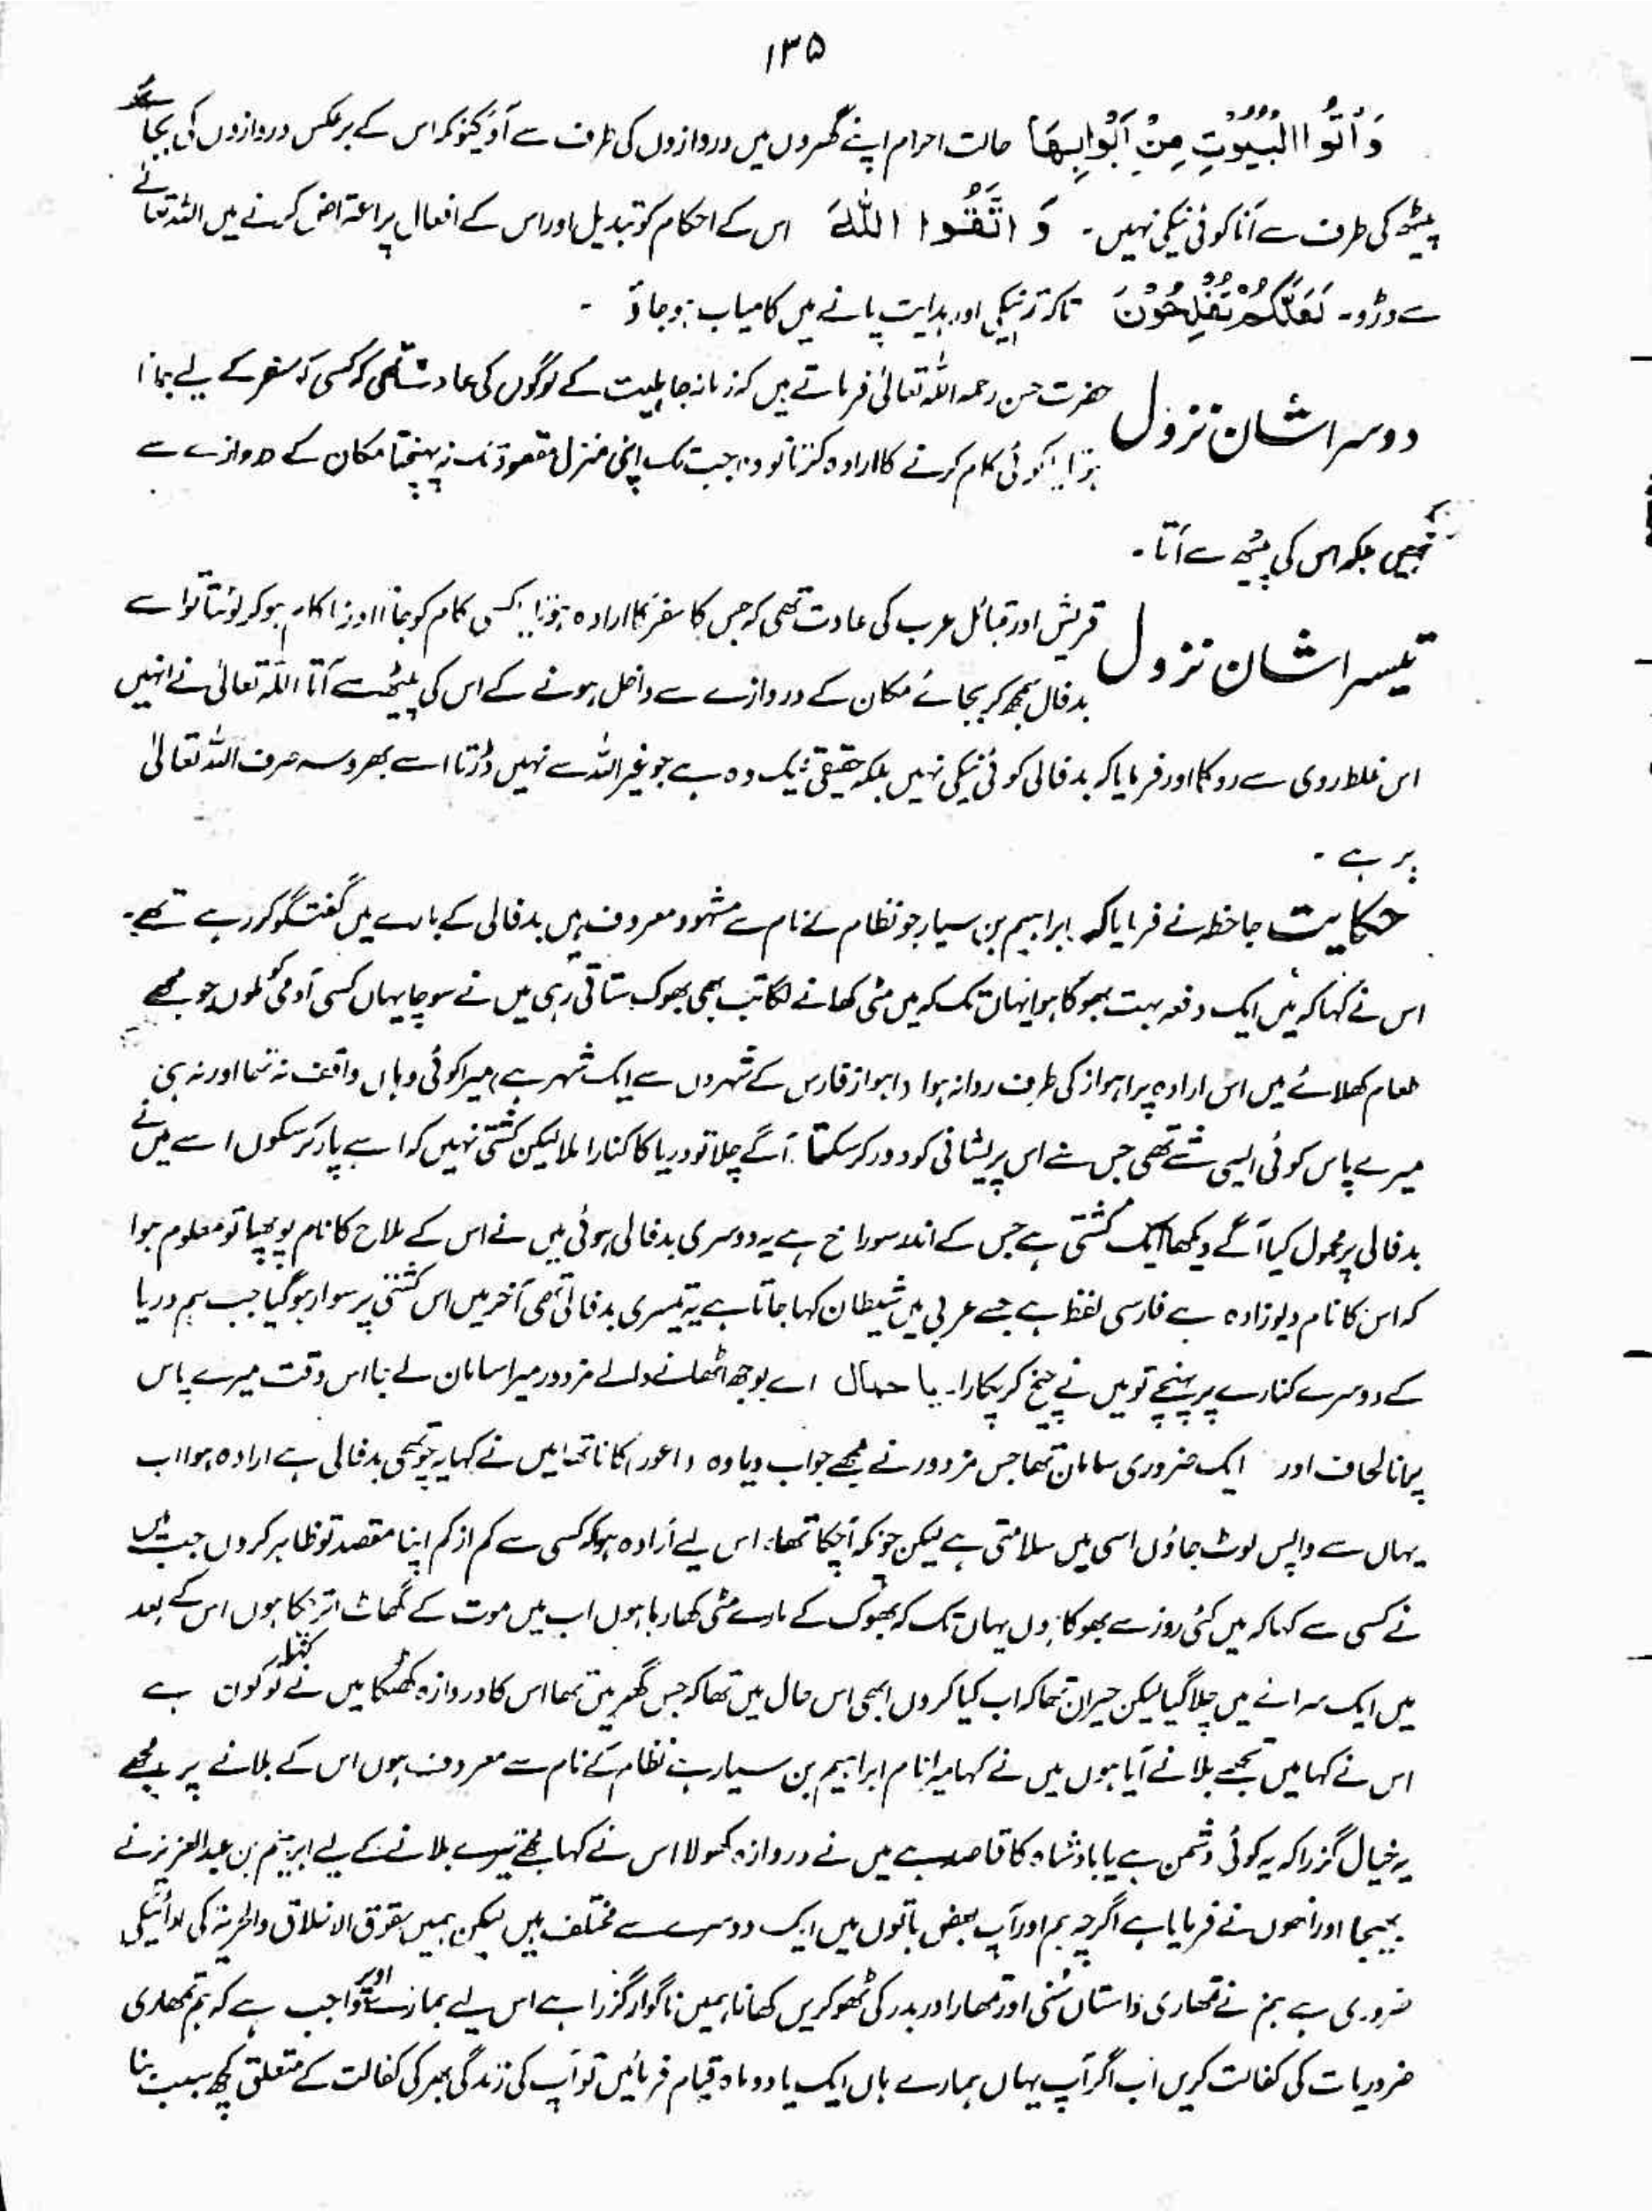 ۱۳۵
وَ أْتُوا الْبُيُوْتَ مِنْ اَبْوَابِهَا حالت احرام اپنے گھروں میں دروازوں کی طرف سے آؤ کیونکہ اس کے برعکس دروازوں کی بجائے
پیٹھ کی طرف سے آنا کوئی نیکی نہیں۔ وَ اتَّقُوا اللهَ اس کے احکام کو تبدیل اور اس کے افعال پر اعتراض کرنے میں اللہ تعالٰے
سے ڈرو۔ لَعَلَّكُمْ تُفْلِحُوْنَ تاکہ تم نیکی اور ہدایت پانے میں کامیاب ہو جاؤ ۔
دوسرا شان نزول حضرت حسن رحمہ اللہ تعالیٰ فرماتے ہیں کہ زمانہ جاہلیت کے لوگوں کی عادت تھی کہ کسی کو سفر کے لیے جانا
ہوتا یا کوئی کام کرنے کا ارادہ کرتا تو وہ جب تک اپنی منزل مقصود تک نہ پہنچتا مکان کے دروازے سے
نہیں بلکہ اس کی پیٹھ سے آتا ۔
تیسرا شان نزول قریش اور قبائل عرب کی عادت تھی کہ جس کا سفر کا ارادہ ہوتا یا کسی کام کو جاتا اور ناکام ہو کر لوٹتا تو اسے
بدفال سمجھ کر بجائے مکان کے دروازے سے داخل ہونے کے اس کی پیٹھ سے آتا اللہ تعالیٰ نے انہیں
اس غلط روی سے روکا اور فرمایا کہ بدفالی کوئی نیکی نہیں بلکہ حقیقی نیک وہ ہے جو غیر اللہ سے نہیں ڈرتا اسے بھروسہ صرف اللہ تعالیٰ
پر ہے ۔
حکایت جاحظ نے فرمایا کہ ابراہیم بن سیار جو نظام کے نام سے مشہور و معروف ہیں بدفالی کے بارے میں گفتگو کر رہے تھے۔
اس نے کہا کہ میں ایک دفعہ بہت بھوکا ہوا یہاں تک کہ میں مٹی کھانے لگا تب بھی بھوک ستاتی رہی میں نے سوچا یہاں کسی آدمی کو ملوں جو مجھے
طعام کھلائے میں اس ارادہ پر اہواز کی طرف روانہ ہوا (اہواز فارس کے شہروں سے ایک شہر ہے) میرا کوئی وہاں واقف نہ تھا اور نہ ہی
میرے پاس کوئی ایسی شے تھی جس سے اس پریشانی کو دور کر سکتا۔ آگے چلا تو دریا کا کنارا ملا لیکن کشتی نہیں کہ اسے پار کر سکوں اسے میں نے
بدفالی پر محمول کیا آگے دیکھا ایک کشتی ہے جس کے اندر سوراخ ہے یہ دوسری بدفالی ہوئی میں نے اس کے ملاح کا نام پوچھا تو معلوم ہوا
کہ اس کا نام دیوزادہ ہے فارسی لفظ ہے جسے عربی میں شیطان کہا جاتا ہے یہ تیسری بدفالی تھی آخر میں اس کشتی پر سوار ہو گیا جب ہم دریا
کے دوسرے کنارے پر پہنچے تو میں نے چیخ کر پکارا۔ یا حمال اے بوجھ اٹھانے والے مزدور میرا سامان لے جا اس وقت میرے پاس
پرانا لحاف اور ایک ضروری سامان تھا جس مزدور نے مجھے جواب دیا وہ (اعور) کانا تھا میں نے کہا یہ چوتھی بدفالی ہے ارادہ ہوا اب
یہاں سے واپس لوٹ جاؤں اسی میں سلامتی ہے لیکن چونکہ آچکا تھا، اس لیے ارادہ ہوا کہ کسی سے کم از کم اپنا مقصد تو ظاہر کروں جب میں
نے کسی سے کہا کہ میں کئی روز سے بھوکا ہوں یہاں تک کہ بھوک کے مارے مٹی کھا رہا ہوں اب میں موت کے گھاٹ اتر چکا ہوں اس کے بعد
میں ایک سرائے میں چلا گیا لیکن حیران تھا کہ اب کیا کروں ابھی اس حال میں تھا کہ جس گھر میں تھا اس کا دروازہ کھٹکا میں نے کہا تو کون ہے
اس نے کہا میں تجھے بلانے آیا ہوں میں نے کہا میرا نام ابراہیم بن سیار ہے نظام کے نام سے معروف ہوں اس کے بلانے پر مجھے
یہ خیال گزرا کہ یہ کوئی دشمن ہے یا بادشاہ کا قاصد ہے میں نے دروازہ کھولا اس نے کہا مجھے تیرے بلانے کے لیے ابراہیم بن عبدالعزیز نے
بھیجا اور انھوں نے فرمایا ہے اگرچہ ہم اور آپ بعض باتوں میں ایک دوسرے سے مختلف ہیں لیکن ہمیں حقوق الاخلاق والحریۃ کی ادائیگی
ضروری ہے ہم نے تمھاری داستاں سنی اور تمھارا در بدر کی ٹھوکریں کھانا ہمیں ناگوار گزرا ہے اس لیے ہمارے اوپر واجب ہے کہ ہم تمھاری
ضروریات کی کفالت کریں اب اگر آپ یہاں ہمارے ہاں ایک یا دو ماہ قیام فرمائیں تو آپ کی زندگی بھر کی کفالت کے متعلق کچھ سبب بنا